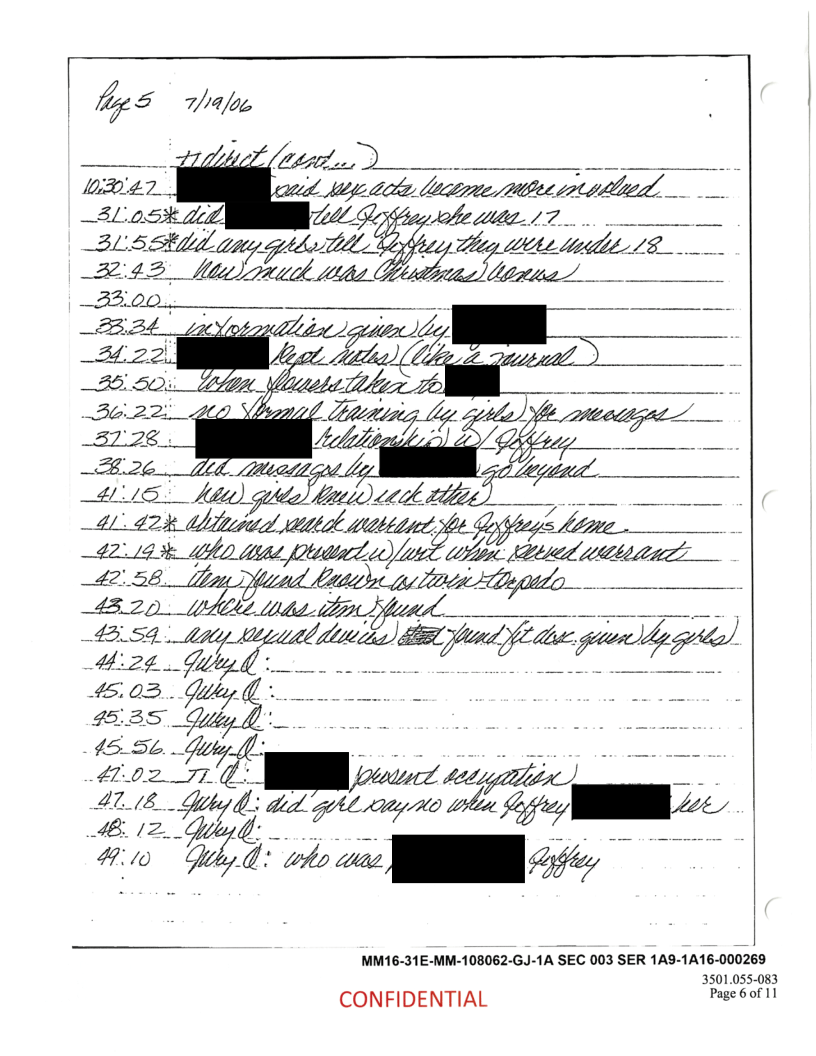 Page 5 7/19/06
π direct (cont...)
10:30:47 said sex acts became more involved
31:05* did tell Jeffrey she was 17
31:55* did any girls tell Jeffrey they were under 18
32:43 how much was Christmas bonus
33:00
33:34 information given by
34:22 kept notes (like a journal)
35:50 when flowers taken to
36:22 no formal training by girls for messages
37:28 relationship w/ Jeffrey
38:26 did messages by go beyond
41:15 how girls knew each other
41:42* obtained search warrant for Jeffrey's home
42:19* who was present w/wit when served warrant
42:58 item found known as twin torpedo
43:20 where was item found
43:59 any sexual devices found fit desc. given by girls
44:24 Jury Q:
45:03 Jury Q:
45:35 Jury Q:
45:56 Jury Q:
47:02 π Q: present occupation
47:18 Jury Q: did girl say no when Jeffrey her
48:12 Jury Q:
49:10 Jury Q: who was Jeffrey
MM16-31E-MM-108062-GJ-1A SEC 003 SER 1A9-1A16-000269
3501.055-083
CONFIDENTIAL
Page 6 of 11